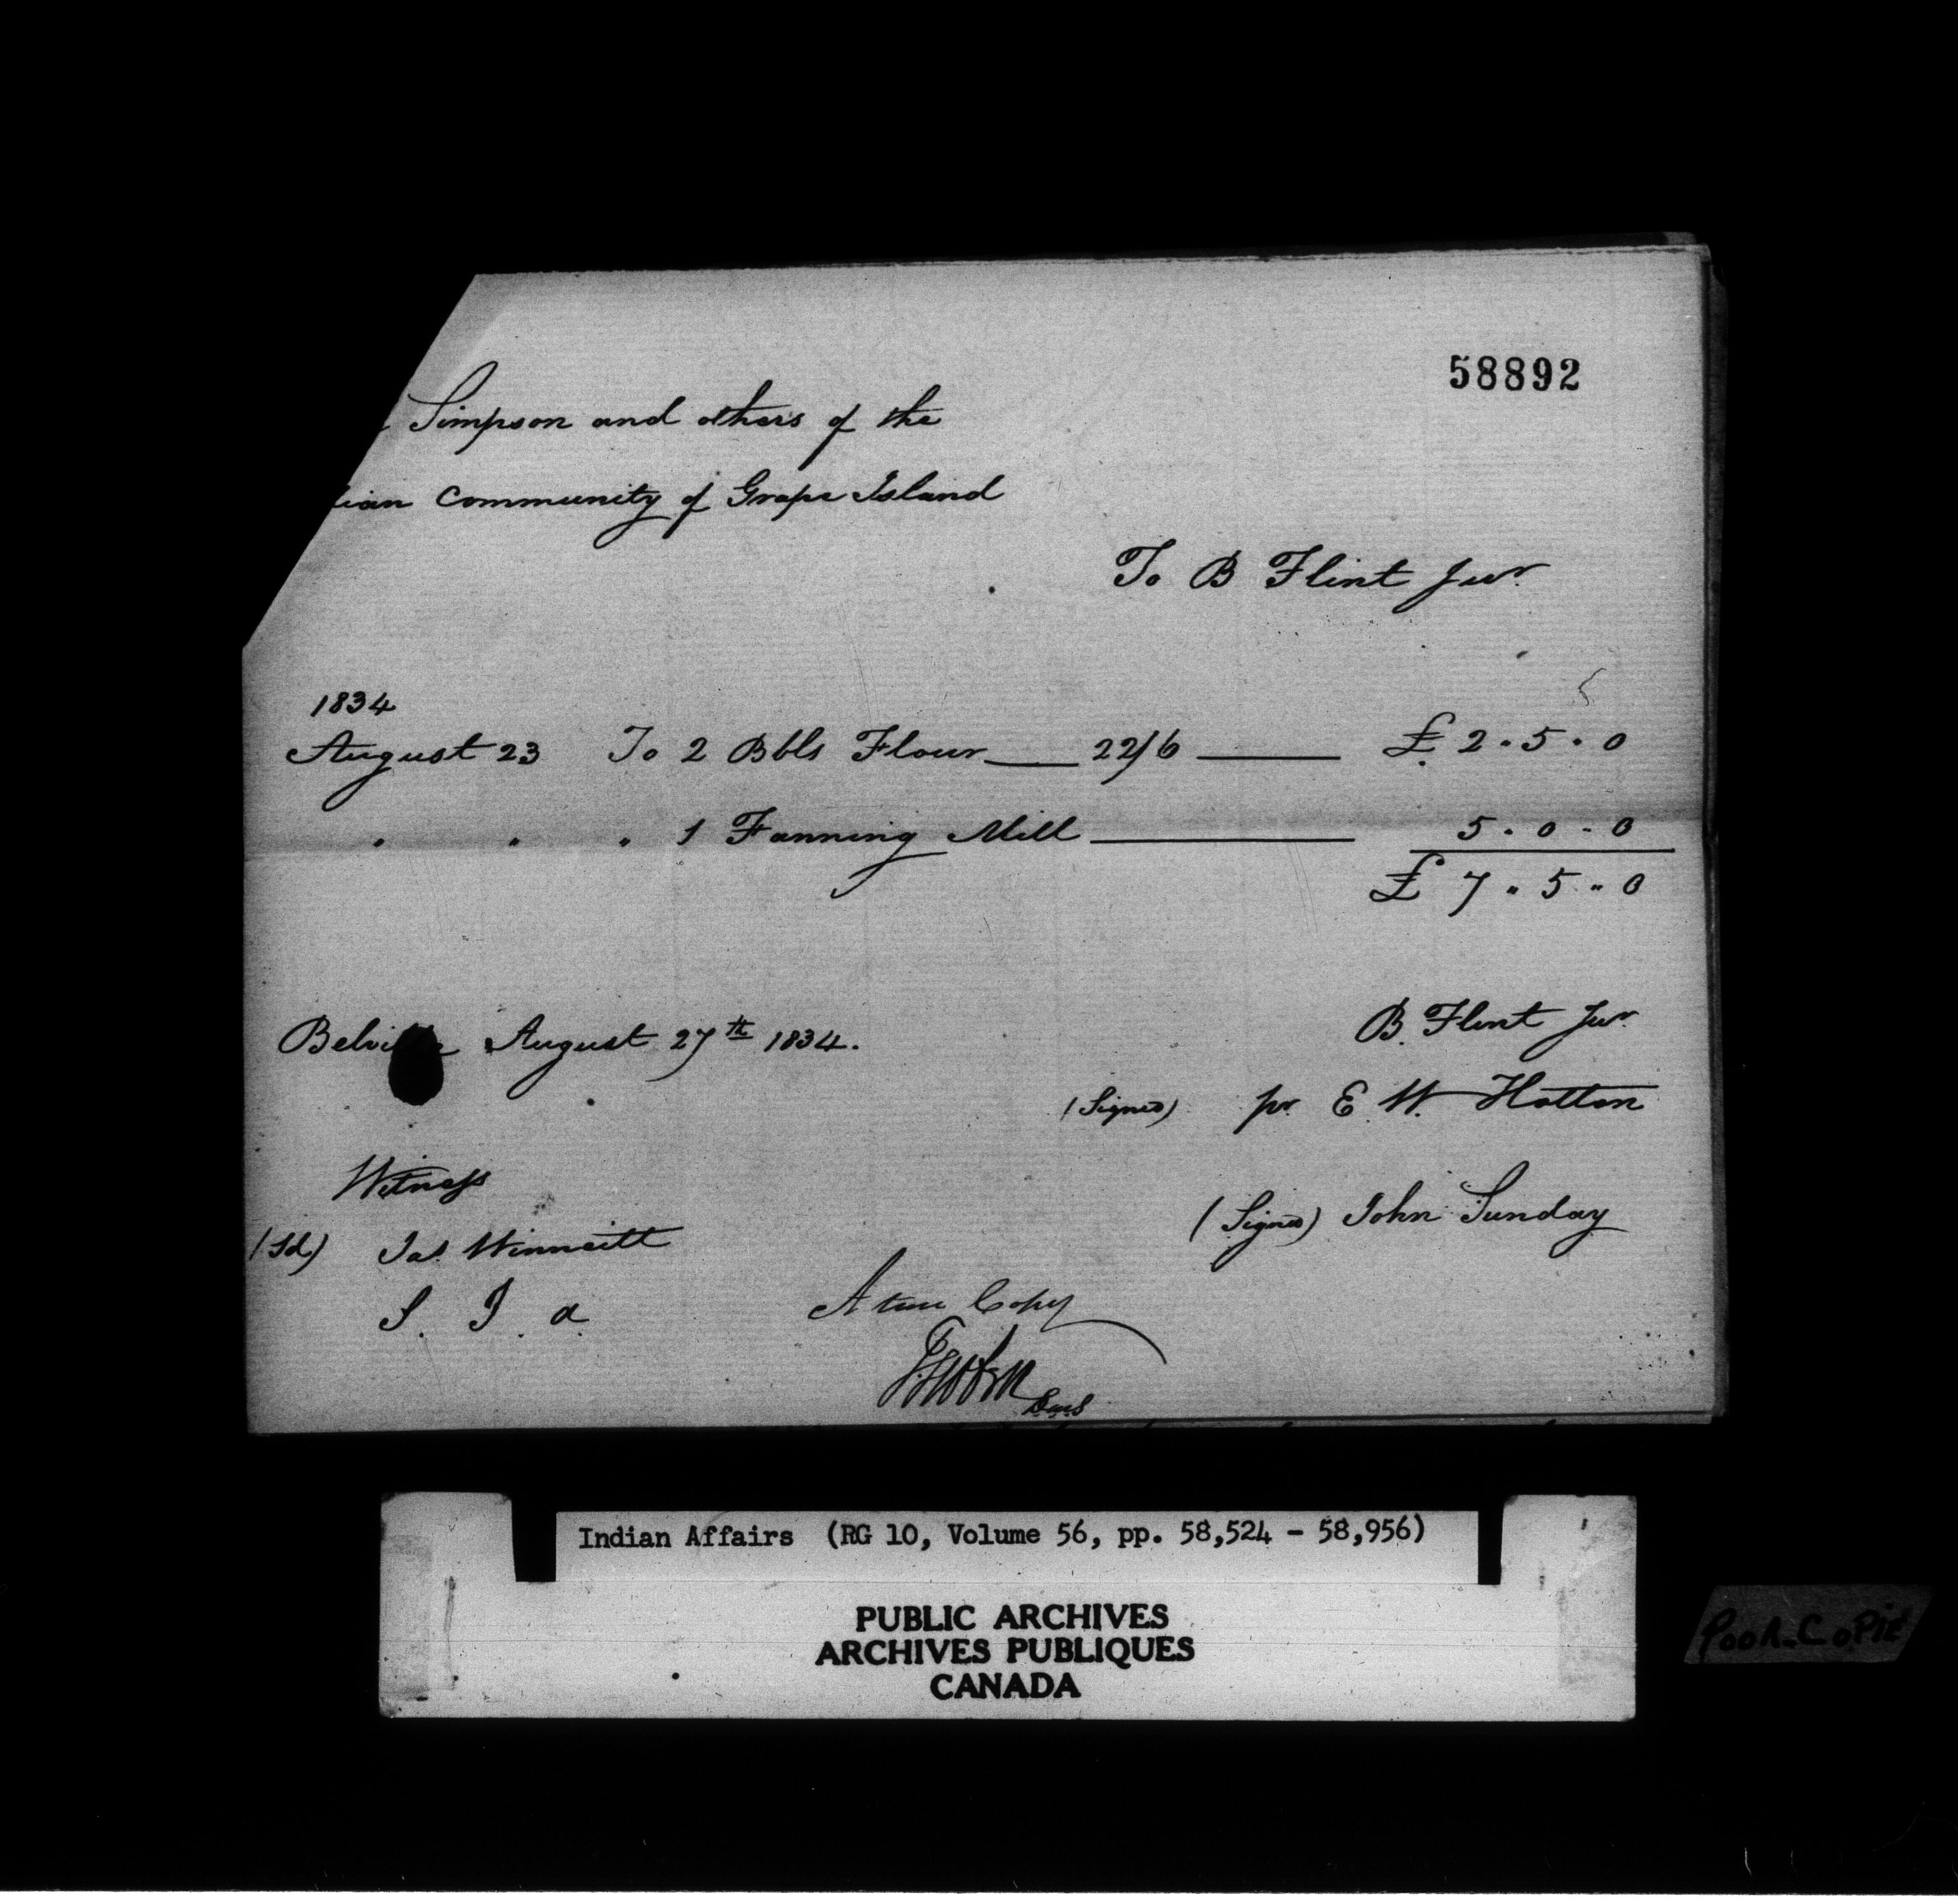 58892
Simpson and others of the
ian Community of Grape Island
To B Flint Junr
1834
August 23 To 2 Bbls Flour 22/6 £ 2 . 5 . 0
" " " 1 Fanning Mill 5 . 0 . 0
£ 7 " 5 " 0
Belville August 27th 1834.
B. Flint Junr
(Signed) pr E. W. Hotton
Witness
(Signed) John Sunday
(Sd) Jas Winneitt
S. I. a.
A true Copy
Indian Affairs (RG 10, Volume 56, pp. 58,524 - 58,956)
PUBLIC ARCHIVES
ARCHIVES PUBLIQUES
CANADA
Poor-Copie